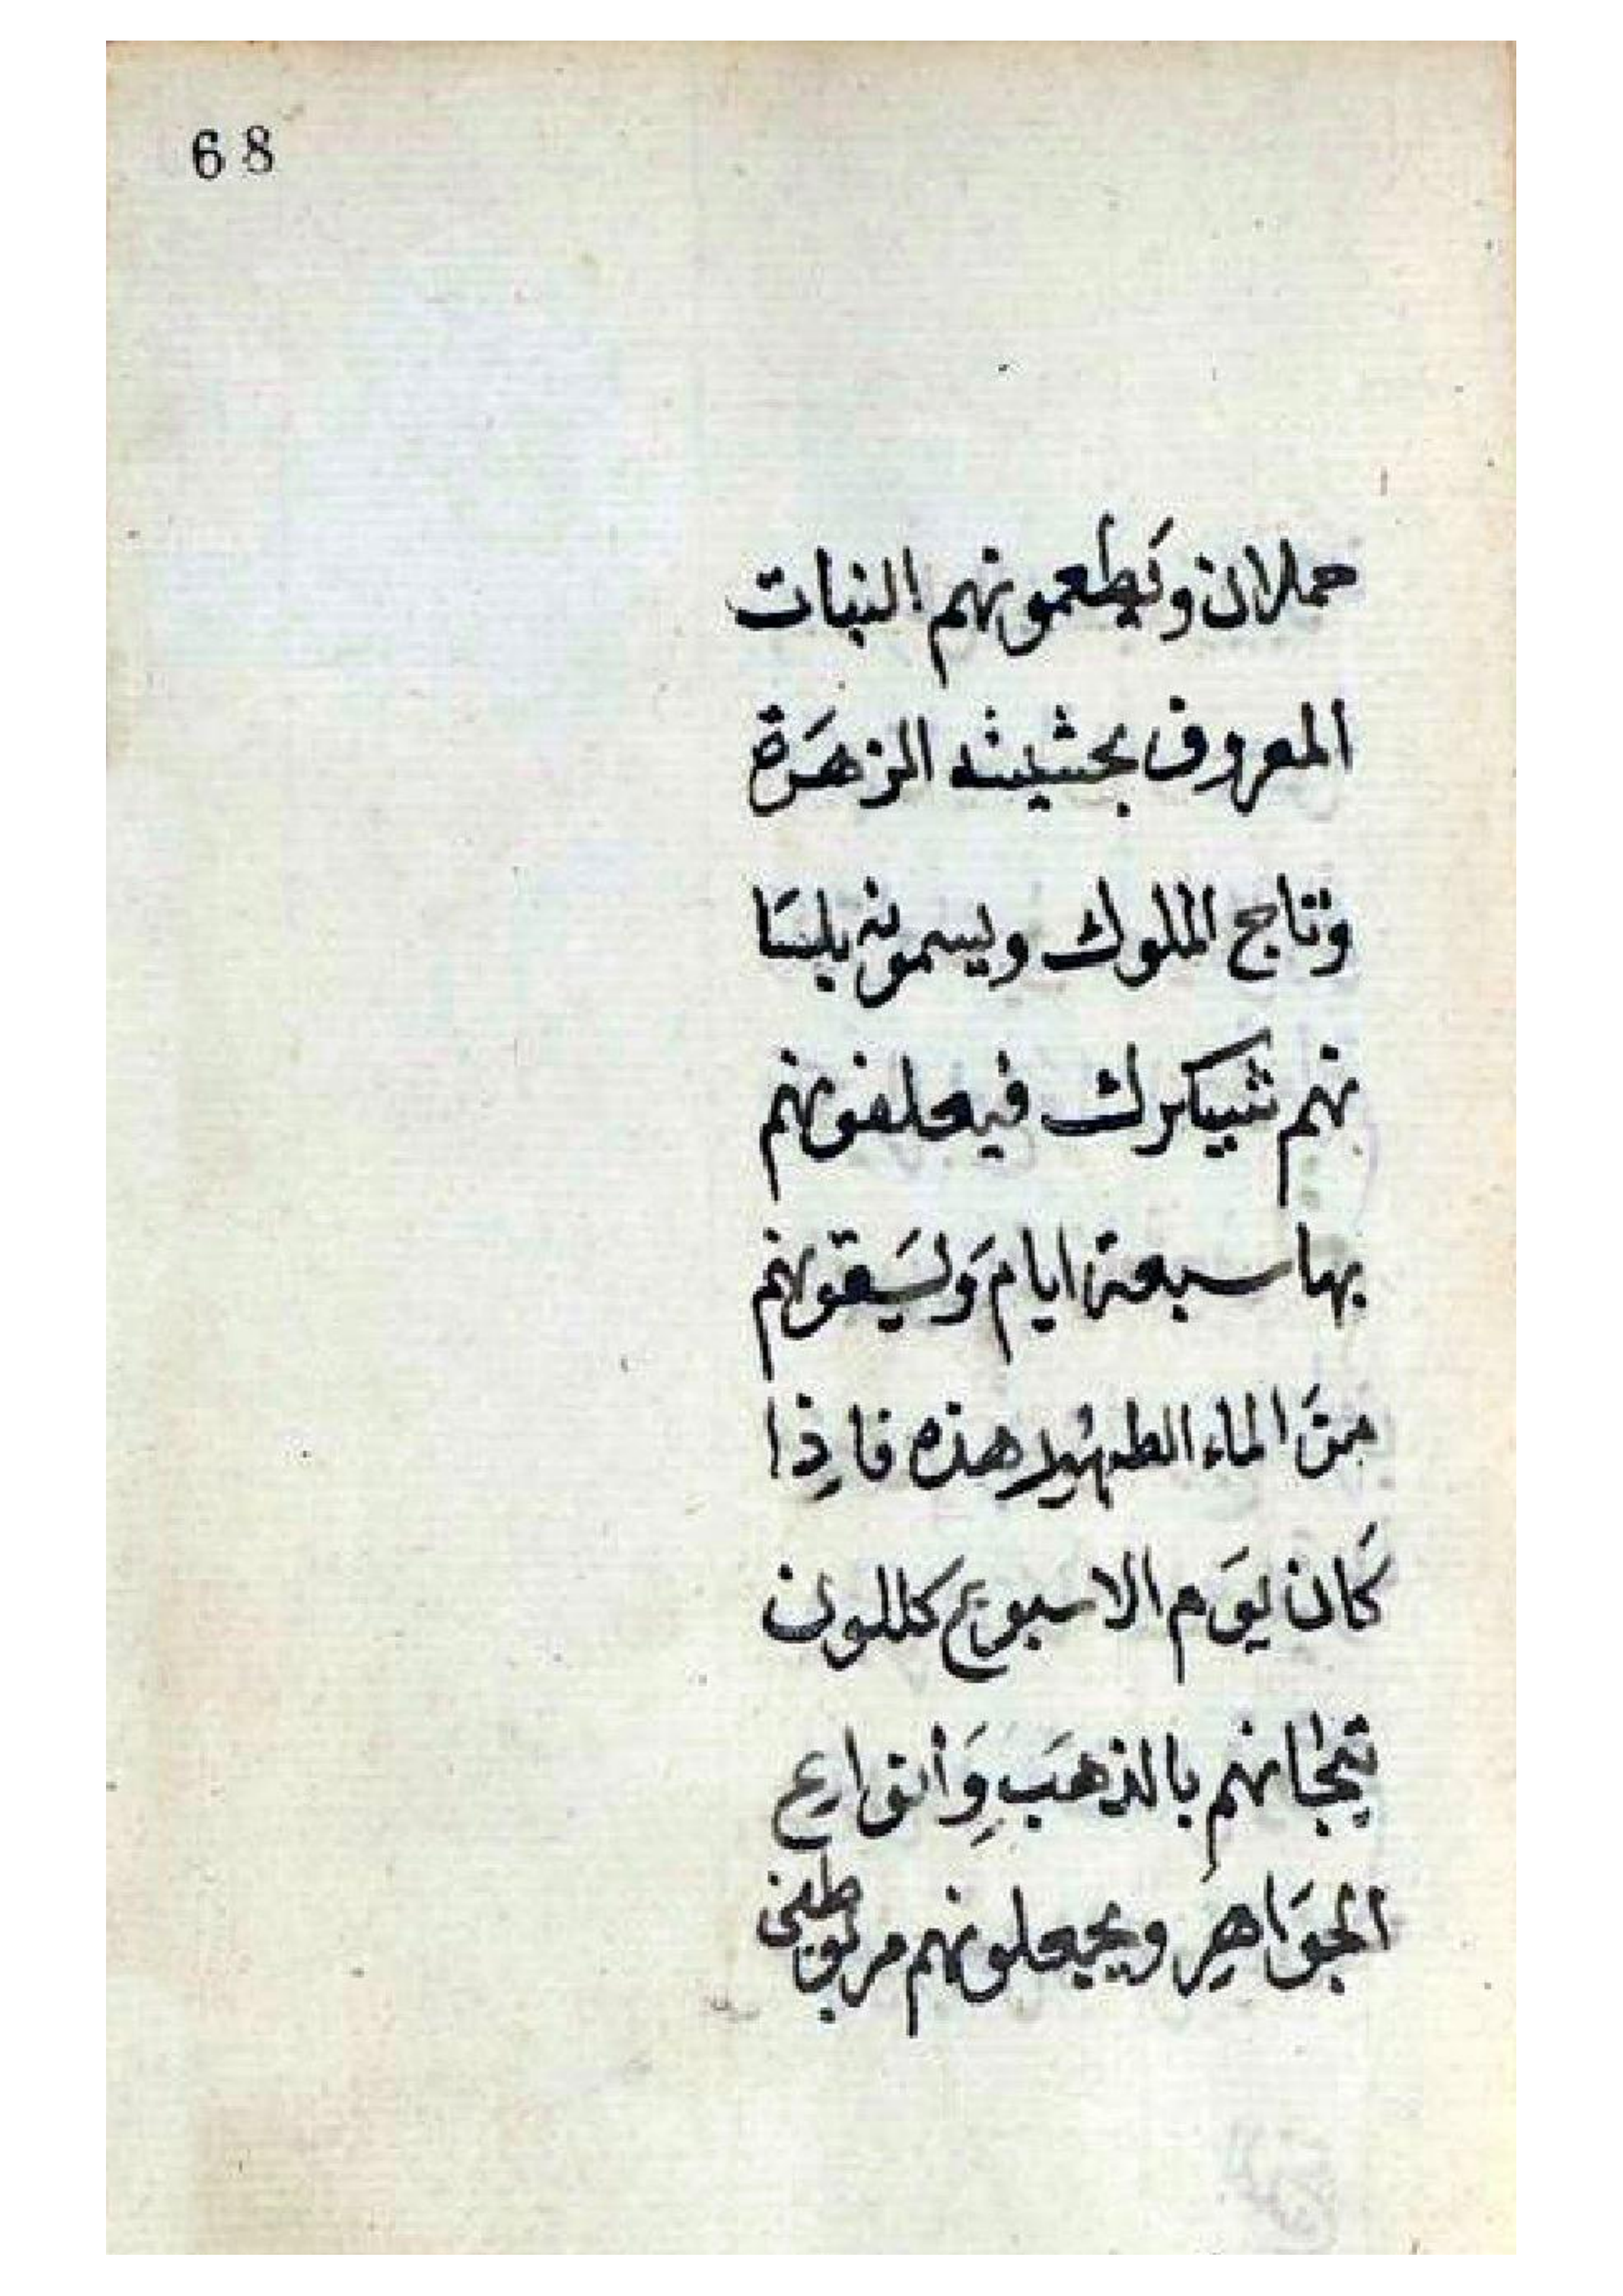 68
حملان وَيطعمونهم النبات
المعروف بحشيشه الزهَرة
وتاج الملوك ويسمونه بلسَا
نهم شبيكرك فيعلفونهم
بها سبعة ايام وَليَسقونهم
منَ الماء الطهُير هذه فاذِا
كَان يوَم الاسبوع كللون
تيجانهم بالذهَبِ وَأنواع
الجوَاهِر ويجعلونهم مربوطين